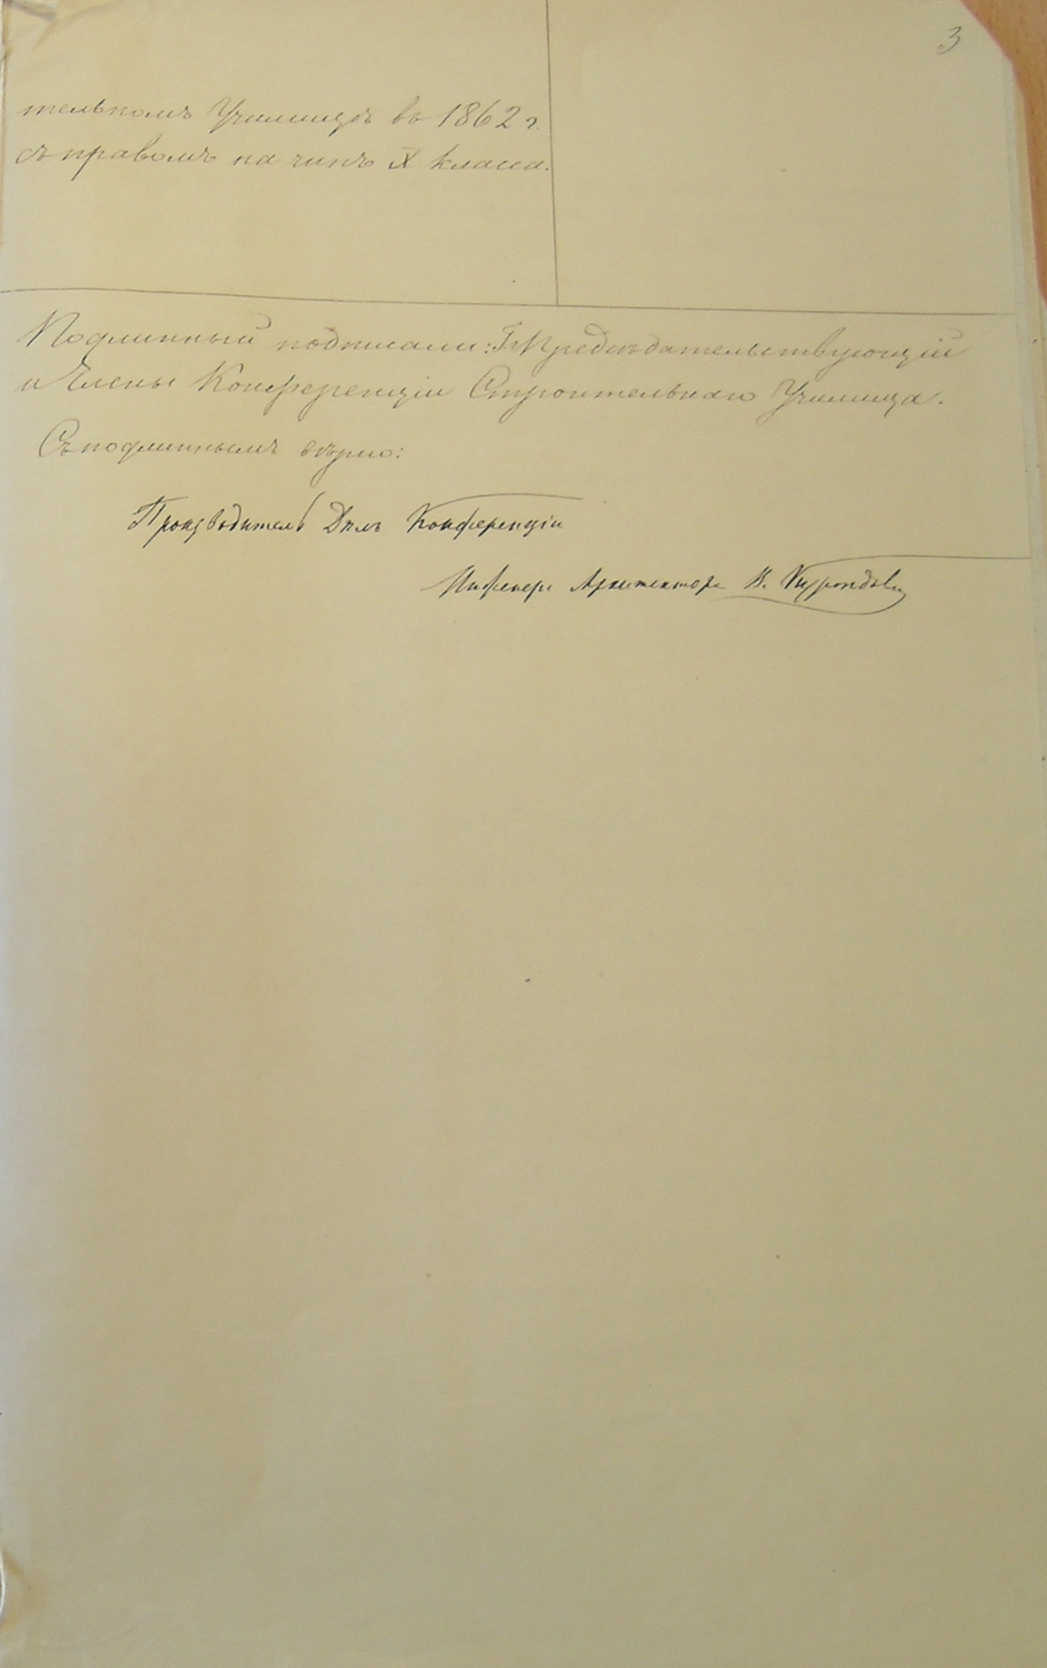 3
тельномъ Училищѣ въ 1862 г.
съ правомъ на чинъ X класса.
Подлинный подписали: Г. Предсѣдательствующій
и Члены Конференціи Строительнаго Училища.
Съ подлиннымъ вѣрно:
Производитель Дѣлъ Конференціи
Инженеръ Архитекторъ